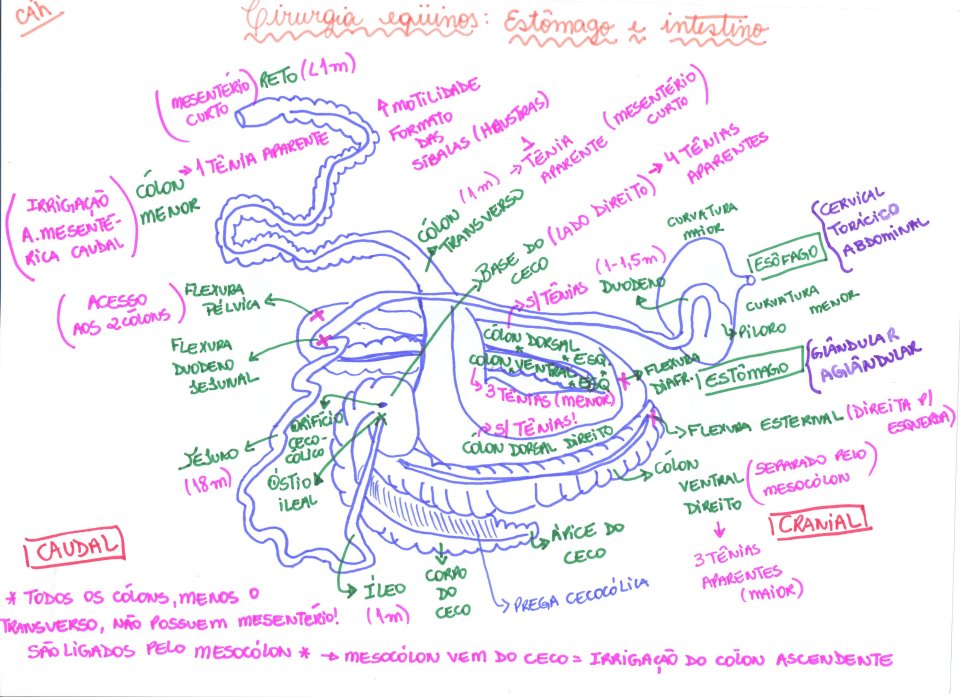 CAH
Cirurgia eqüinos: Estômago e intestino
(MESENTÉRIO
CURTO)
RETO (<1m)
↑ MOTILIDADE
FORMATO
DAS
SÍBALAS (HAUSTRAS)
CÓLON
MENOR
→ 1 TÊNIA APARENTE
(IRRIGAÇÃO
A. MESENTÉ-
RICA CAUDAL)
CÓLON
TRANSVERSO
(1m) → 1
TÊNIA
APARENTE
(MESENTÉRIO
CURTO)
BASE DO
CECO
(LADO DIREITO) → 4 TÊNIAS
APARENTES
CURVATURA
MAIOR
ESÔFAGO
CERVICAL
TORÁCICO
ABDOMINAL
(ACESSO
AOS 2 CÓLONS)
FLEXURA
PÉLVICA
S/ TÊNIAS
(1-1,5m)
DUODENO
CURVATURA
MENOR
PILORO
FLEXURA
DUODENO
JEJUNAL
CÓLON DORSAL
* ESQ
CÓLON VENTRAL
* ESQ
3 TÊNIAS (MENOR)
FLEXURA
DIAFR.
ESTÔMAGO
GLÂNDULAR
AGLÂNDULAR
ORIFÍCIO
CECO-
CÓLICO
S/ TÊNIAS!
CÓLON DORSAL DIREITO
FLEXURA ESTERNAL (DIREITA P/
ESQUERDA)
JEJUNO
(18m)
ÓSTIO
ILEAL
CÓLON
VENTRAL
DIREITO
(SEPARADO PELO
MESOCÓLON)
CRANIAL
3 TÊNIAS
APARENTES
(MAIOR)
CAUDAL
ÁPICE DO
CECO
ÍLEO
(1m)
CORPO
DO
CECO
PREGA CECOCÓLICA
* TODOS OS CÓLONS, MENOS O
TRANSVERSO, NÃO POSSUEM MESENTÉRIO!
SÃO LIGADOS PELO MESOCÓLON * → MESOCÓLON VEM DO CECO = IRRIGAÇÃO DO CÓLON ASCENDENTE